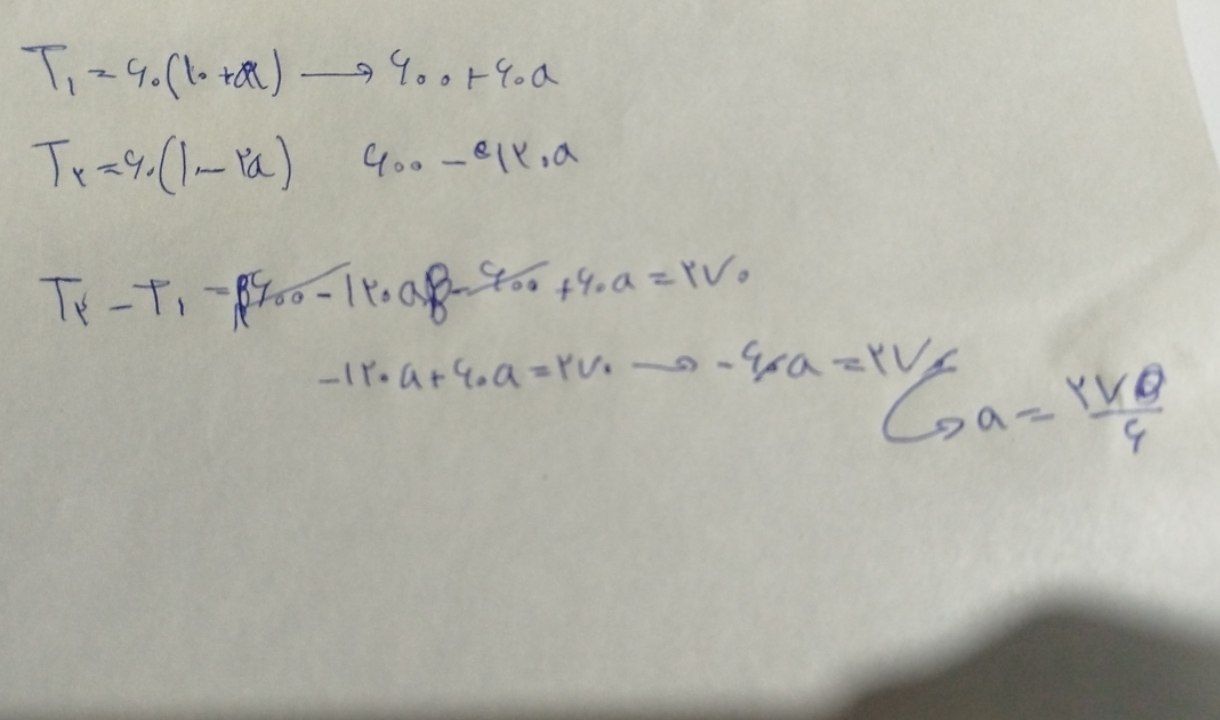 T₁ = ۶۰(۱۰+a) → ۶۰۰+۶۰a
T₂ = ۶۰(۱۰-۲a) ۶۰۰-۱۲۰a
T₂ - T₁ = ۶۰۰-۱۲۰a - ۶۰۰+۶۰a = ۲۷۰
-۱۲۰a+۶۰a = ۲۷۰ → -۶۰a = ۲۷۰
a = ۲۷/۶